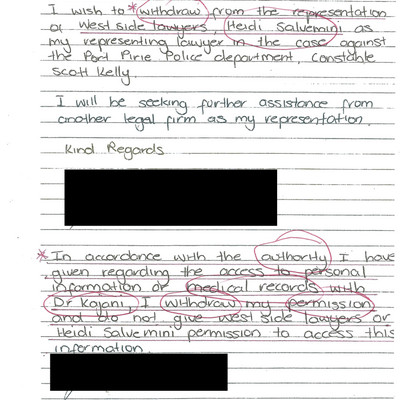 I wish to *withdraw from the representation
of West side lawyers, Heidi Salvemini as
my representing lawyer in the case against
the Port Pirie Police department, Constable
Scott Kelly.
I will be seeking further assistance from
another legal firm as my representation.
Kind Regards
*In accordance with the authority I have
given regarding the access to personal
information or medical records with
Dr Kajani, I withdraw my permission
and do not give West side lawyers or
Heidi Salvemini permission to access this
information.